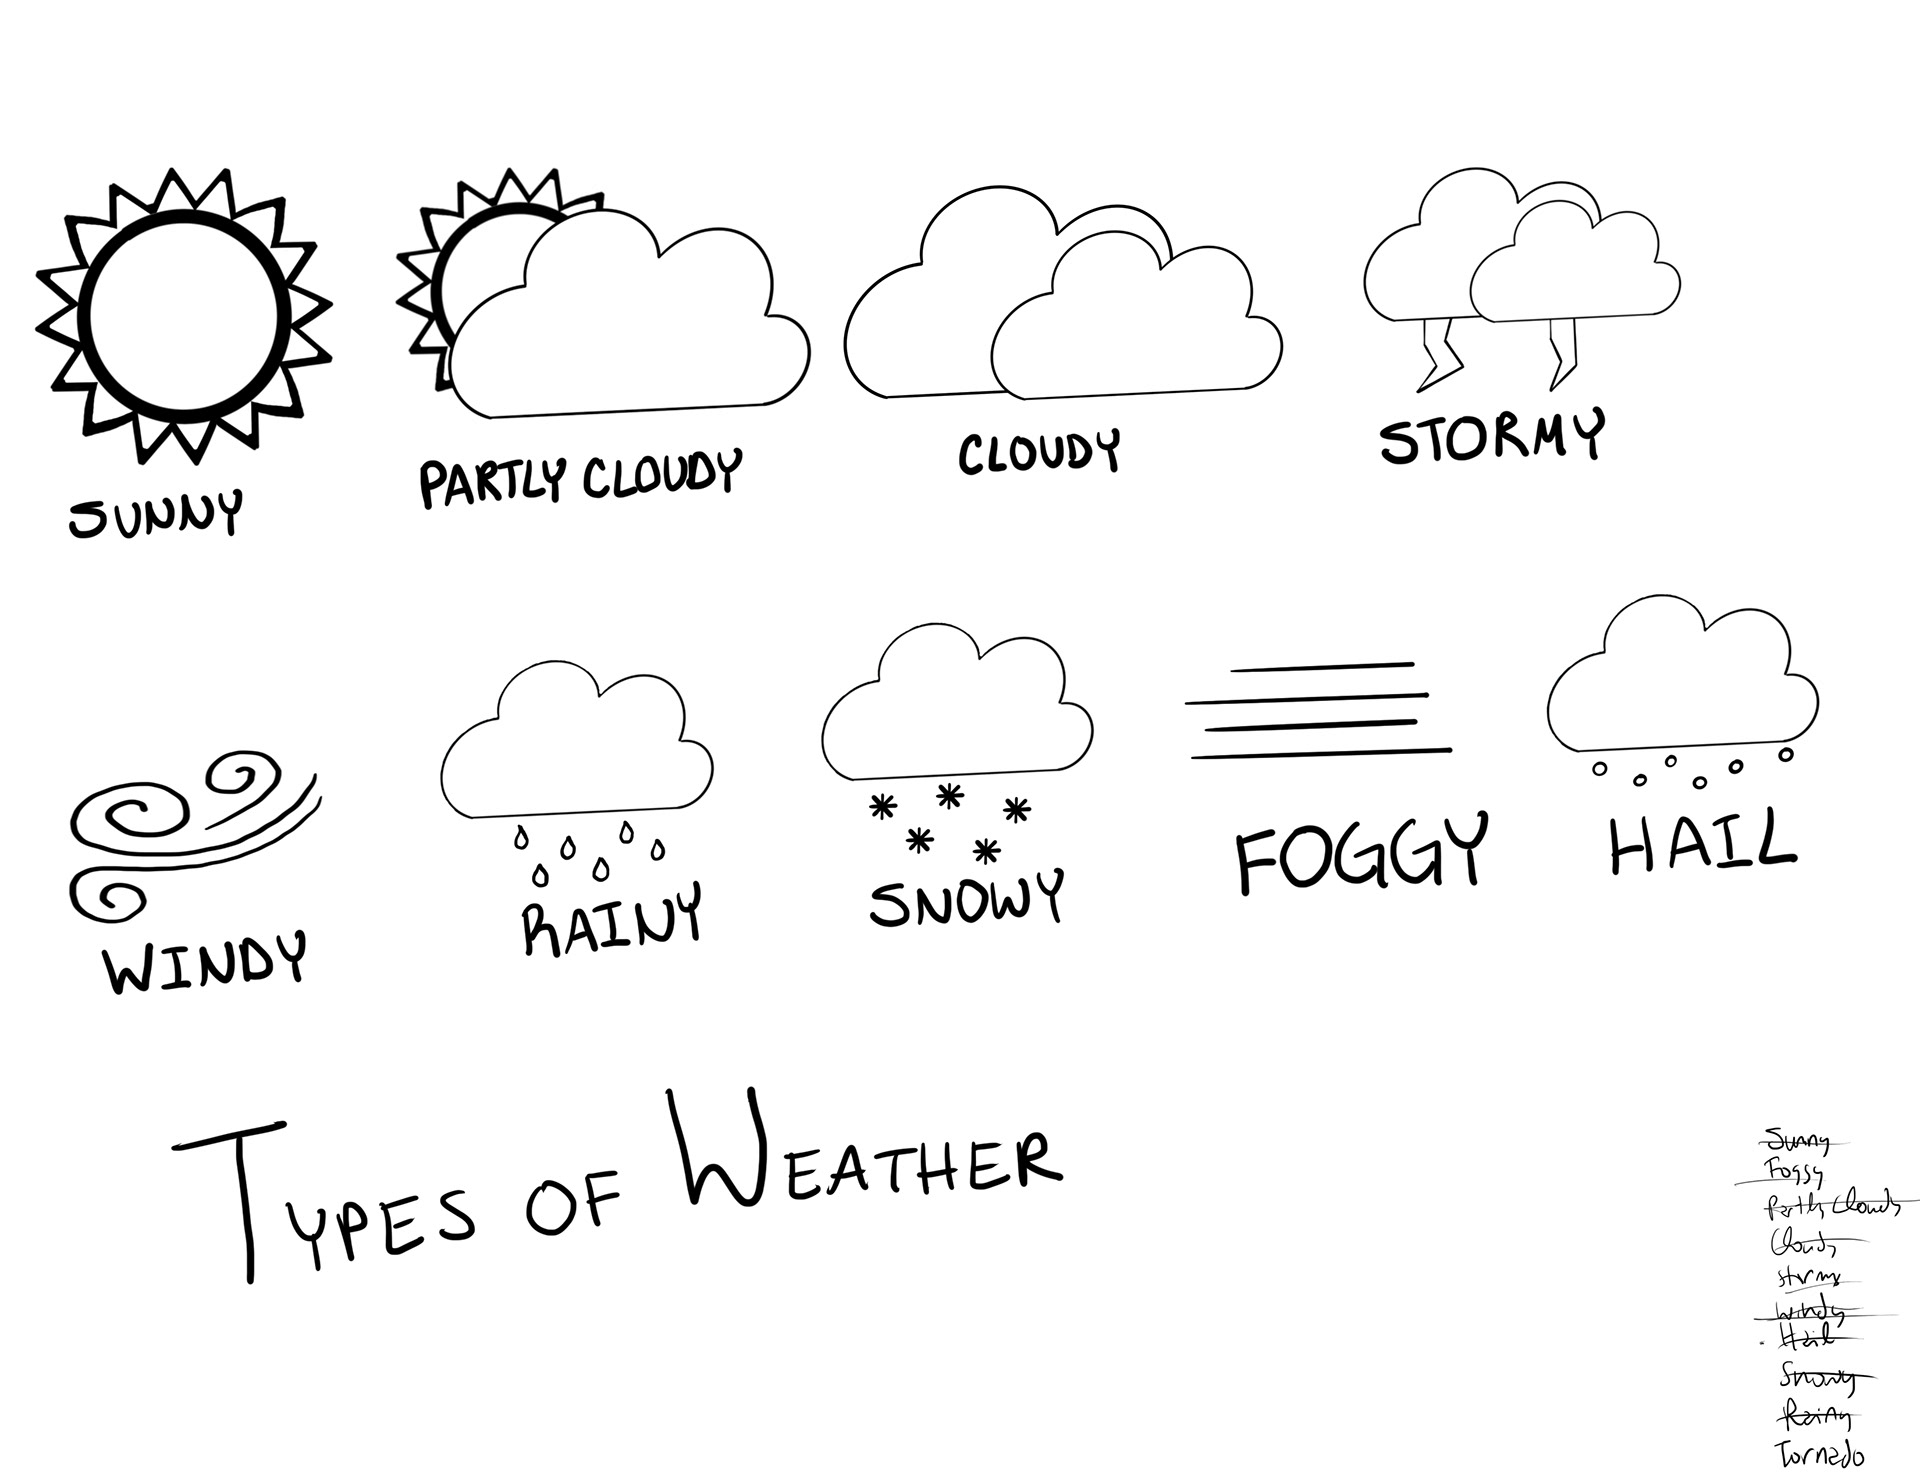 SUNNY
PARTLY CLOUDY
CLOUDY
STORMY
WINDY
RAINY
SNOWY
FOGGY
HAIL
TYPES OF WEATHER
Sunny
Foggy
Partly Cloudy
Cloudy
Stormy
Windy
Hail
Snowy
Rainy
Tornado